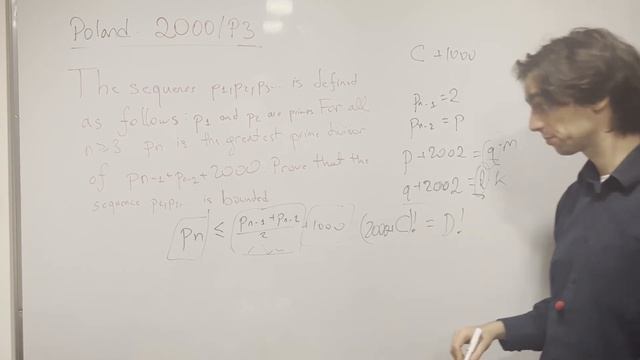 Poland 2000/P3
The sequence p1,p2,p3... is defined
as follows: p1 and p2 are primes. For all
n≥3 pn is the greatest prime divisor
of pn-1+pn-2+2000. Prove that the
sequence p1,p2,... is bounded
pn ≤ (pn-1+pn-2)/2 + 1000
(2000+C)! = D!
C+1000
pn-1=2
pn-2=p
p+2002=q·m
q+2002=l·k